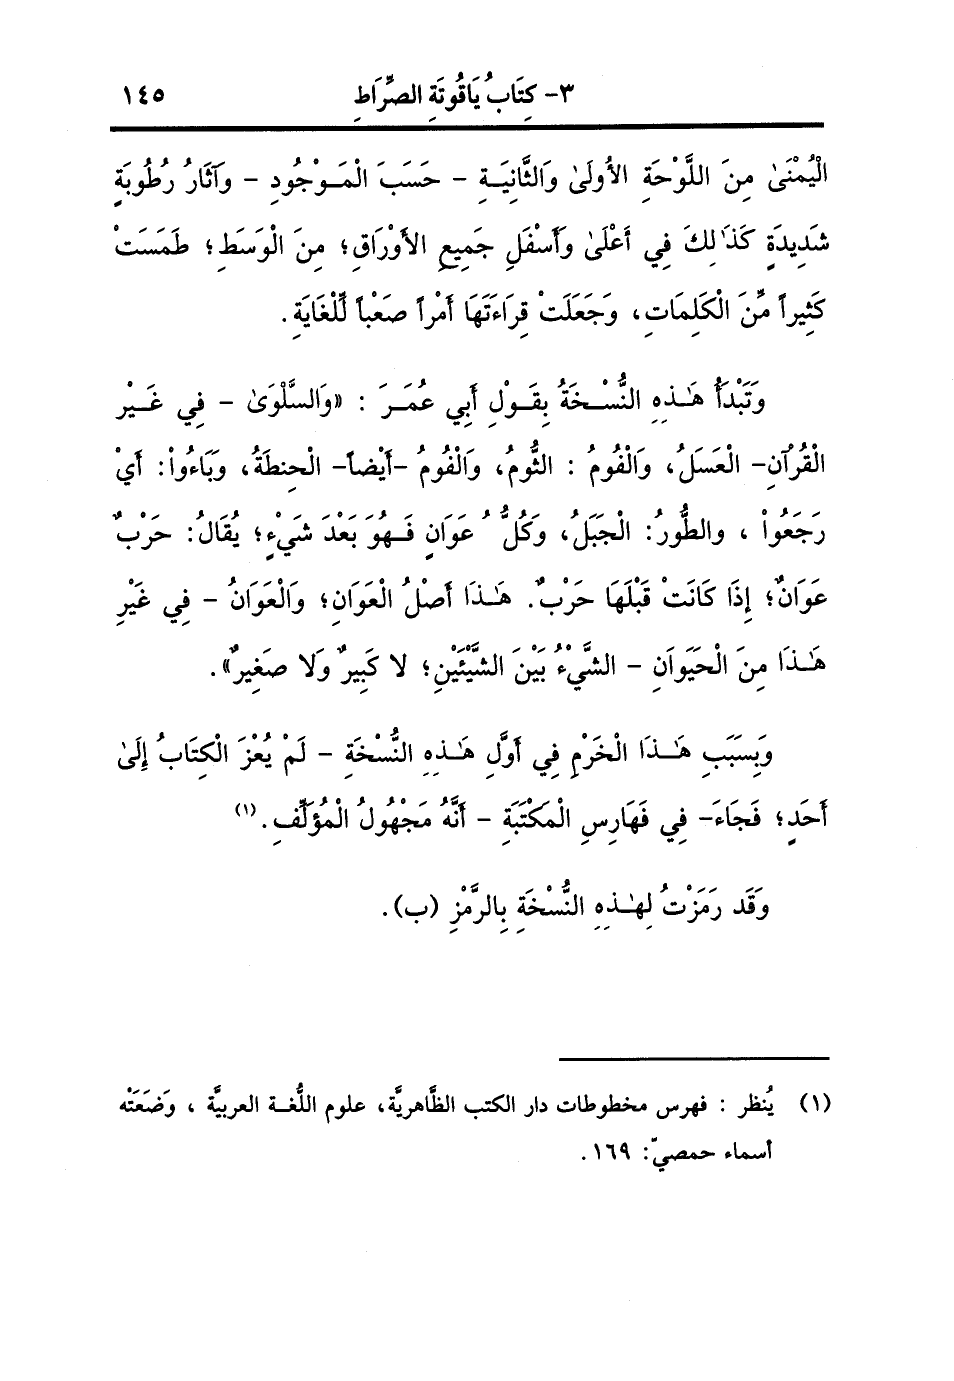 ٣- كِتَابُ يَاقُوتَةِ الصِّرَاطِ ١٤٥
الْيُمْنَىٰ مِنَ اللَّوْحَةِ الأُولَىٰ وَالثَّانِيَـةِ - حَسَبَ الْمَـوْجُودِ - وَآثَارُ رُطُوبَةٍ
شَدِيدَةٍ كَذَٰلِكَ فِي أَعْلَىٰ وَأَسْفَلِ جَمِيعِ الأَوْرَاقِ؛ مِنَ الْوَسَطِ؛ طَمَسَتْ
كَثِيراً مِّنَ الْكَلِمَاتِ، وَجَعَلَتْ قِرَاءَتَهَا أَمْراً صَعْباً لِّلْغَايَةِ.
وَتَبْدَأُ هَـٰذِهِ النُّسْـخَةُ بِقَـوْلِ أَبِي عُمَـرَ : «وَالسَّلْوَىٰ - فِي غَـيْرِ
الْقُرْآنِ- الْعَسَلُ، وَالْفُومُ : الثُّومُ، وَالْفُومُ -أَيْضاً- الْحِنطَةُ، وَبَاءُواْ: أَيْ
رَجَعُواْ ، والطُّورُ: الْجَبَلُ، وَكُلُّ عَوَانٍ فَـهُوَ بَعْدَ شَيْءٍ؛ يُقَالُ: حَرْبٌ
عَوَانٌ؛ إِذَا كَانَتْ قَبْلَهَا حَرْبٌ. هَـٰذَا أَصْلُ الْعَوَانِ؛ وَالْعَوَانُ - فِي غَيْرِ
هَـٰذَا مِنَ الْحَيَوَانِ - الشَّيْءُ بَيْنَ الشَّيْئَيْنِ؛ لا كَبِيرٌ وَلا صَغِيرٌ».
وَبِسَبَبِ هَـٰذَا الْخَرْمِ فِي أَوَّلِ هَـٰذِهِ النُّسْخَةِ - لَمْ يُعْزَ الْكِتَابُ إِلَىٰ
أَحَدٍ؛ فَجَاءَ- فِي فَهَارِسِ الْمَكْتَبَةِ - أَنَّهُ مَجْهُولُ الْمُؤَلِّفِ.(١)
وَقَد رَمَزْتُ لِهَـٰذِهِ النُّسْخَةِ بِالرَّمْزِ (ب).
(١) يُنظر : فهرس مخطوطات دار الكتب الظَّاهريَّة، علوم اللُّغـة العربيَّة ، وَضَعَتْه
أسماء حمصيّ: ١٦٩.